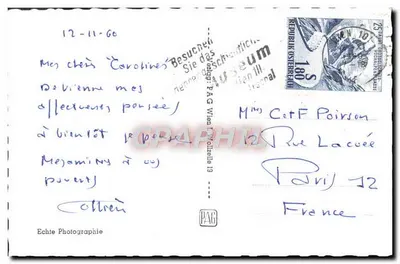 12-11-60
Mes chers "Carolines"
De Vienne mes
affectueuses pensées,
à bientôt je pense.
Mes amitiés à vos
parents
Besuchen
Sie das
Museum
Wien III
REPUBLIK ÖSTERREICH
S 1.80
WIEN 101
Verlag P.A.G. Wien
Mmes C et F Poirson
12 Rue Lacuée
Paris 12
France
PAG
Echte Photographie